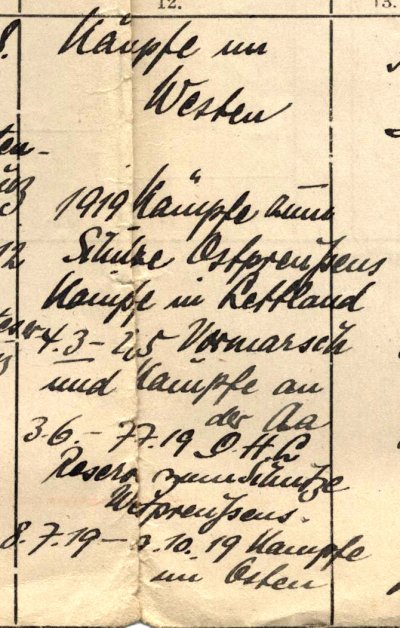 12.
13.
8.
Kämpfe im
Westen
1919 Kämpfe zum
Schutze Ostpreußens
Kämpfe in Lettland
4.3 - 2.5 Vormarsch
und Kämpfe an
der Aa
3.6. - 7.7.19 O.H.L
Reserve zum Schutze
Westpreußens.
8.7.19 - 3.10.19 Kämpfe
im Osten